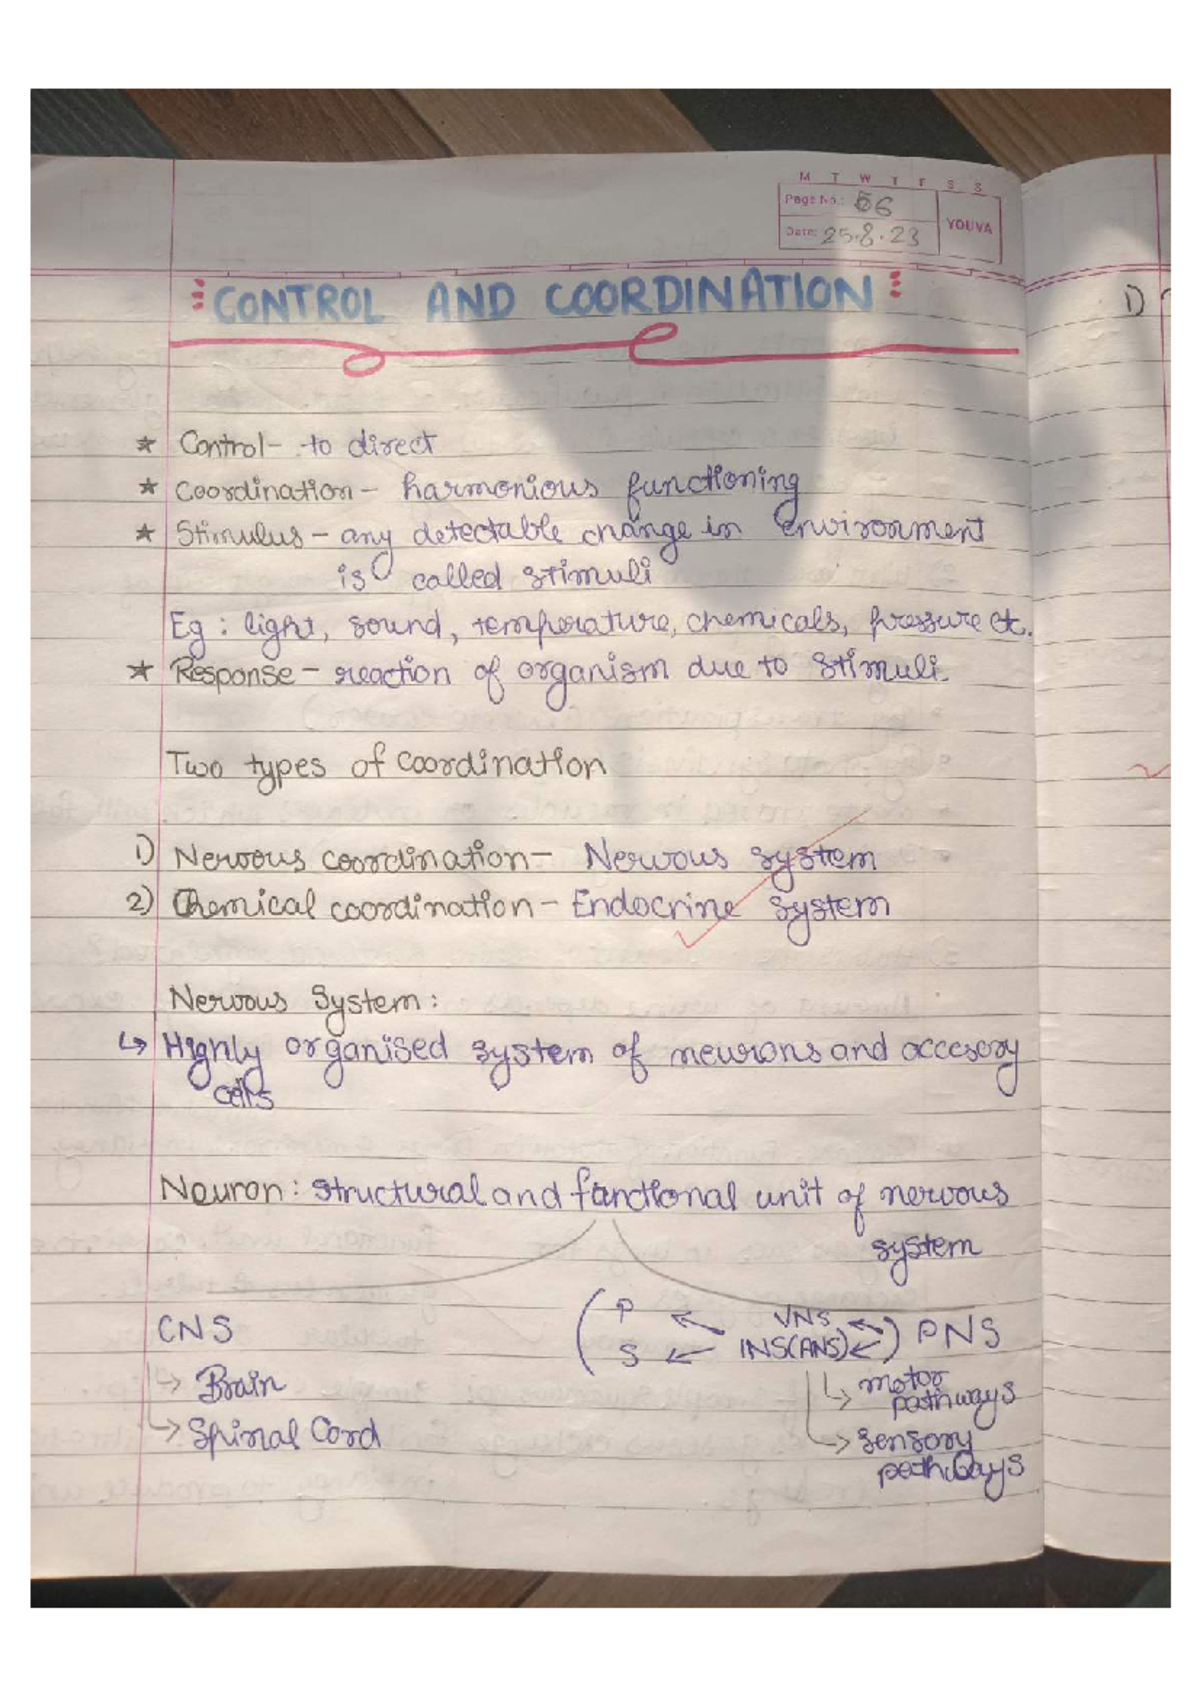 M T W T F S S
Page No.: 66
Date: 25.8.23
YOUVA
CONTROL AND COORDINATION
1)
★ Control - to direct
★ Coordination - harmonious functioning
★ Stimulus - any detectable change in environment
is called stimuli
Eg : light, sound, temperature, chemicals, pressure etc.
★ Response - reaction of organism due to stimuli.
Two types of coordination
1) Nervous coordination - Nervous system
2) Chemical coordination - Endocrine system
Nervous System :
↳ Highly organised system of neurons and accesory
cells
Neuron : structural and functional unit of nervous
system
CNS
↳ Brain
↳ Spinal Cord
( P ← VNS ← ) PNS
S ← INS(ANS) ←
↳ motor
pathways
↳ sensory
pathways